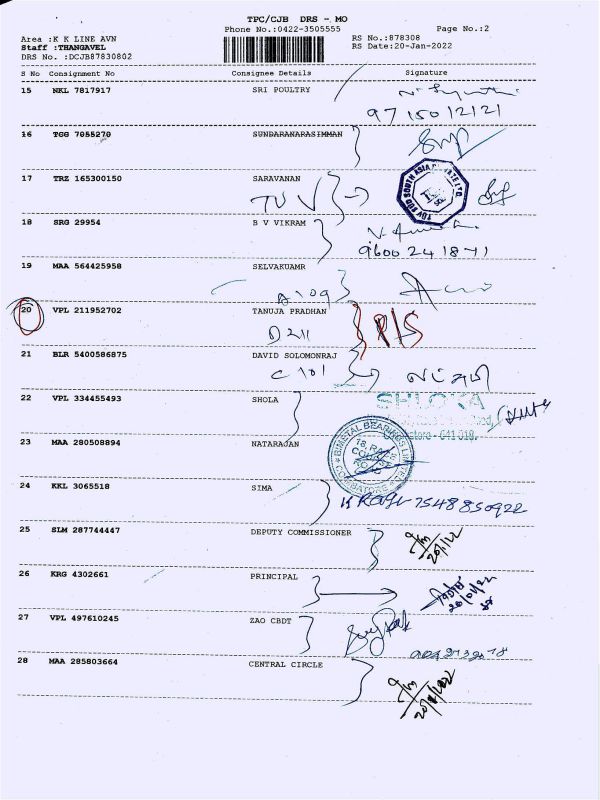 TPC/CJB DRS - MO
Phone No.:0422-3505555
Page No.:2
Area :K K LINE AVN
RS No.:878308
Staff :THANGAVEL
RS Date:20-Jan-2022
DRS No. :DCJB87830802
S No Consignment No Consignee Details Signature
15 NKL 7817917 SRI POULTRY
9715012121
16 TGG 7055270 SUNDARANARASIMMAN
17 TRZ 165300150 SARAVANAN
TUV
TUV SUD SOUTH ASIA PRIVATE LTD.
18 SRG 29954 B V VIKRAM
9600241871
19 MAA 564425958 SELVAKUAMR
A109
20 VPL 211952702 TANUJA PRADHAN
D211 P/S
21 BLR 5400586875 DAVID SOLOMONRAJ
C101
22 VPL 334455493 SHOLA
SHLOKA
641 018.
BIMETAL BEARINGS LIMITED
COIMBATORE
23 MAA 280508894 NATARAJAN
24 KKL 3065518 SIMA
K Ragu 7548850922
25 SLM 287744447 DEPUTY COMMISSIONER
20/1/22
26 KRG 4302661 PRINCIPAL
20/01/22
27 VPL 497610245 ZAO CBDT
28 MAA 285803664 CENTRAL CIRCLE
20/1/2022